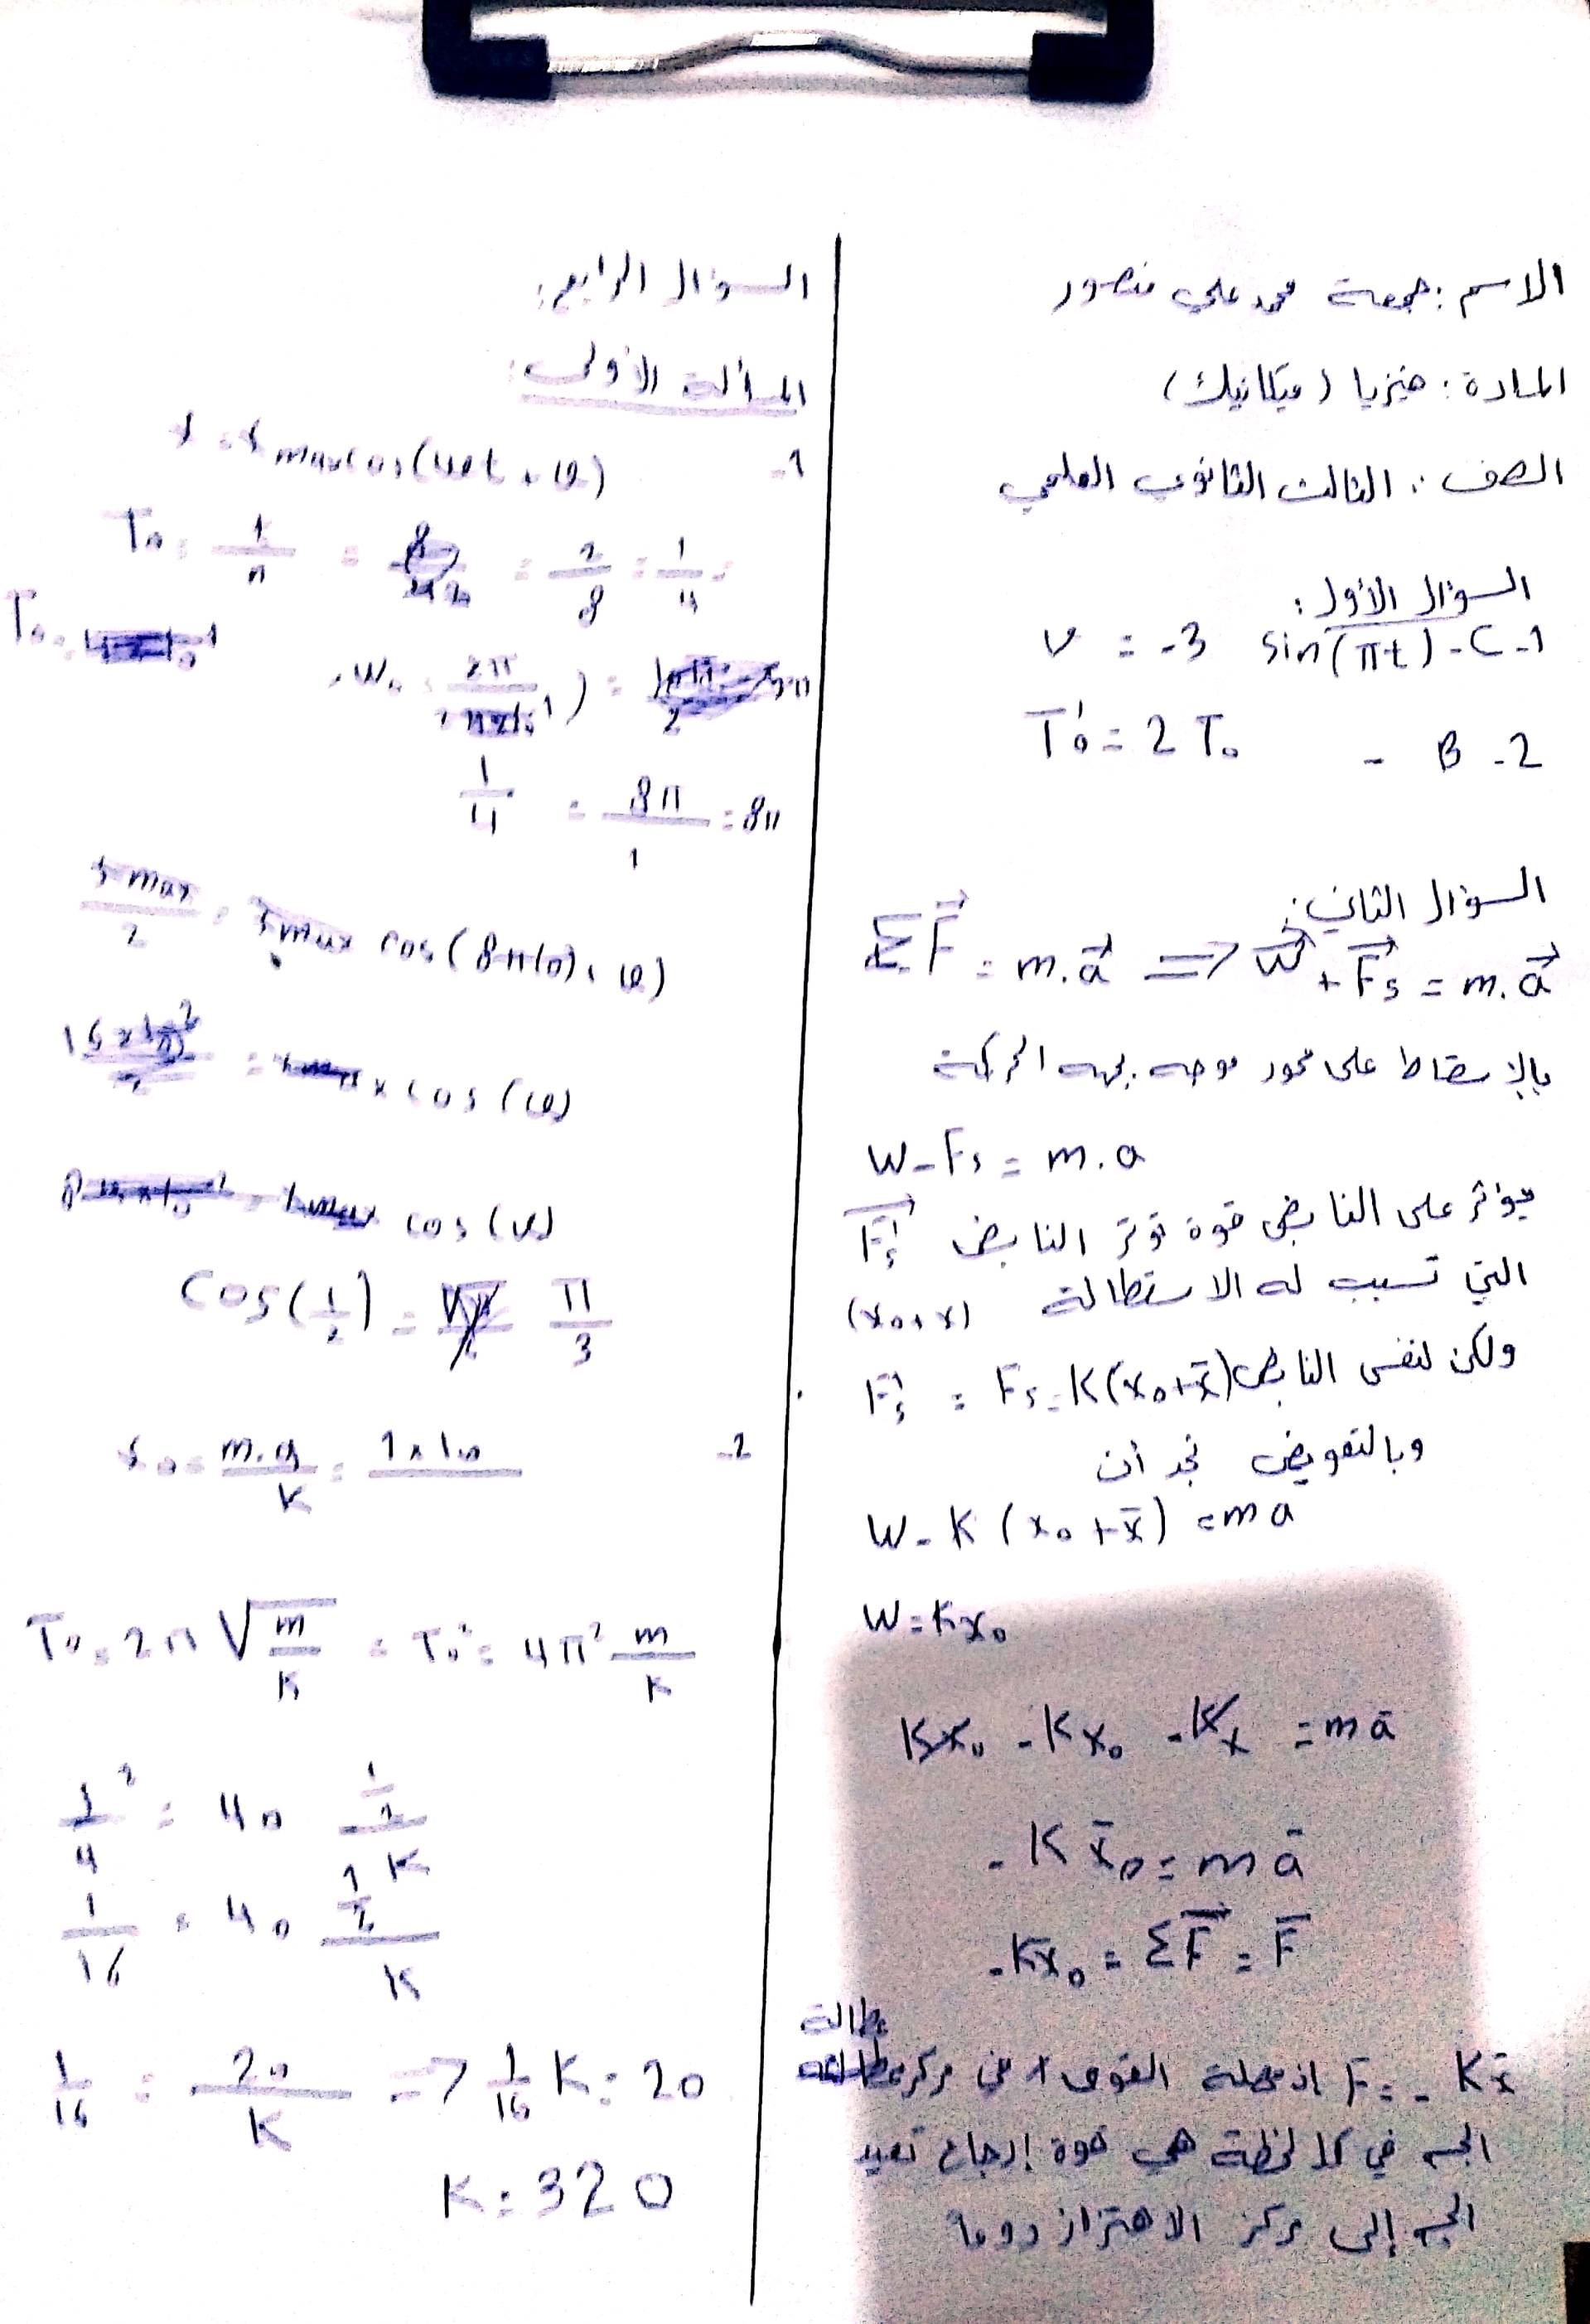 الاسم : جمعة محمد علي منصور
المادة : فيزيا (ميكانيك)
الصف : الثالث الثانوي العلمي
السؤال الأول :
1- C - v = -3 sin(πt)
2- B - T'₀ = 2 T₀
السؤال الثاني :
ΣF⃗ = m.a⃗ => W⃗ + F⃗s = m.a⃗
بالإسقاط على محور موجه بجهة الحركة
W - Fs = m.a
يؤثر على النابض قوة توتر النابض F⃗'s
التي تسبب له الاستطالة (x₀+x)
ولكن لنفس النابض F's = Fs = K(x₀+x̄)
وبالتعويض نجد أن
W - K (x₀ + x̄) = ma
W = Kx₀
Kx₀ - Kx₀ - Kx = mā
- K x̄₀ = mā
- Kx̄₀ = ΣF⃗ = F̄
F = - Kx̄ إذ محصلة القوى في مركز عطالة
الجسم في كل لحظة هي قوة إرجاع تعيد
الجسم إلى مركز الاهتزاز دوما
السؤال الرابع :
المسألة الأولى :
1- x = xmax cos(ω₀t + φ)
T₀ = 1/n = 2/8 = 1/4
T₀ =
ω₀ = 2π
1/4 = 8π/1 = 8π
xmax/2 = xmax cos(8π(0) + φ)
cos(φ)
cos(φ)
cos(1/2) = π/3
2- x₀ = m.g/K = 1×10
T₀ = 2π √m/K = T₀² = 4π² m/K
1/4² = 40 1/2/K
1/16 = 40 1/2/K
1/16 = 20/K => 1/16 K = 20
K = 320